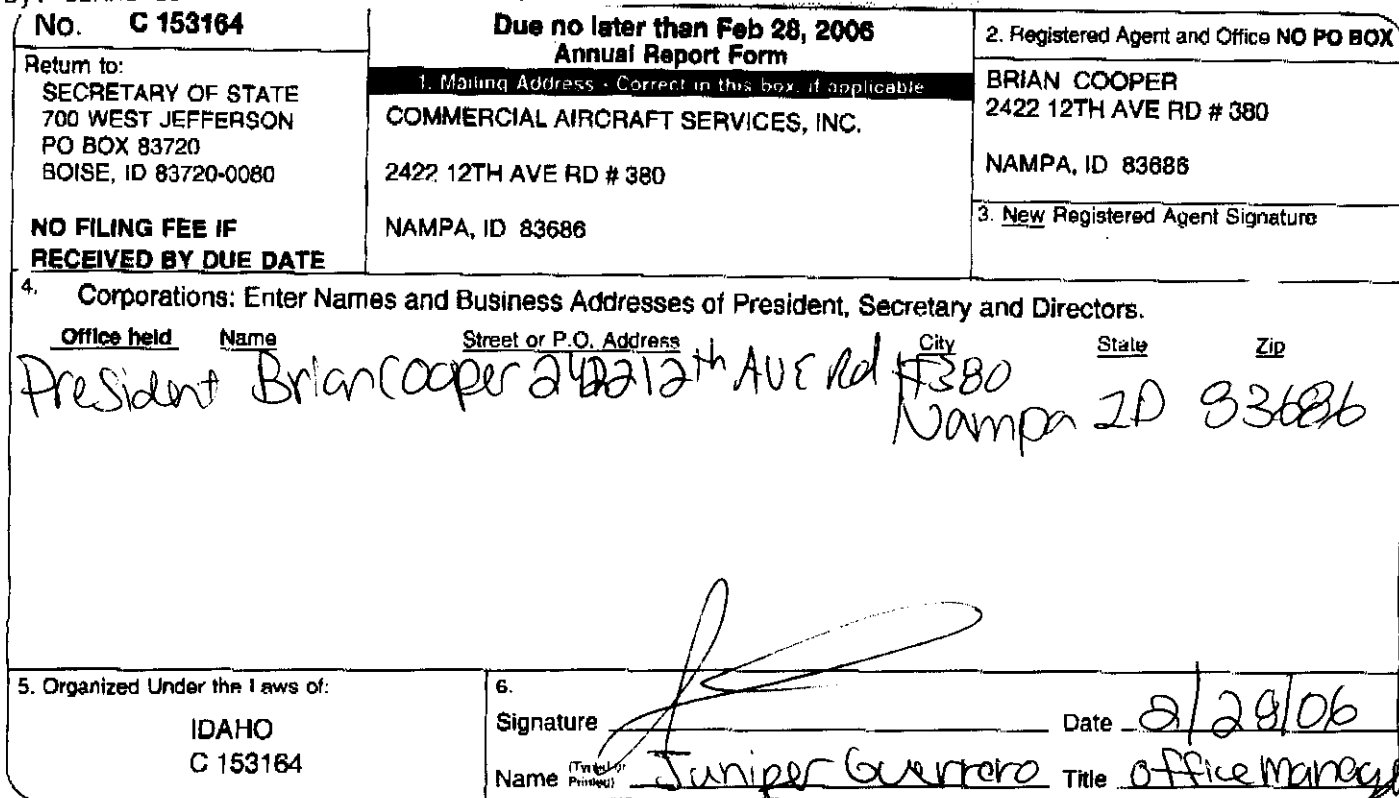 No. C 153164
Return to:
SECRETARY OF STATE
700 WEST JEFFERSON
PO BOX 83720
BOISE, ID 83720-0080
NO FILING FEE IF
RECEIVED BY DUE DATE
Due no later than Feb 28, 2006
Annual Report Form
1. Mailing Address - Correct in this box, if applicable
COMMERCIAL AIRCRAFT SERVICES, INC.
2422 12TH AVE RD # 380
NAMPA, ID 83686
2. Registered Agent and Office NO PO BOX
BRIAN COOPER
2422 12TH AVE RD # 380
NAMPA, ID 83686
3. New Registered Agent Signature
4. Corporations: Enter Names and Business Addresses of President, Secretary and Directors.
Office held Name Street or P.O. Address City State Zip
President Brian Cooper 2422 12th AVE Rd #380
Nampa ID 83686
5. Organized Under the Laws of:
IDAHO
C 153164
6.
Signature Date 2/28/06
Name (Typed or Printed) Juniper Guerrero Title Office Manager